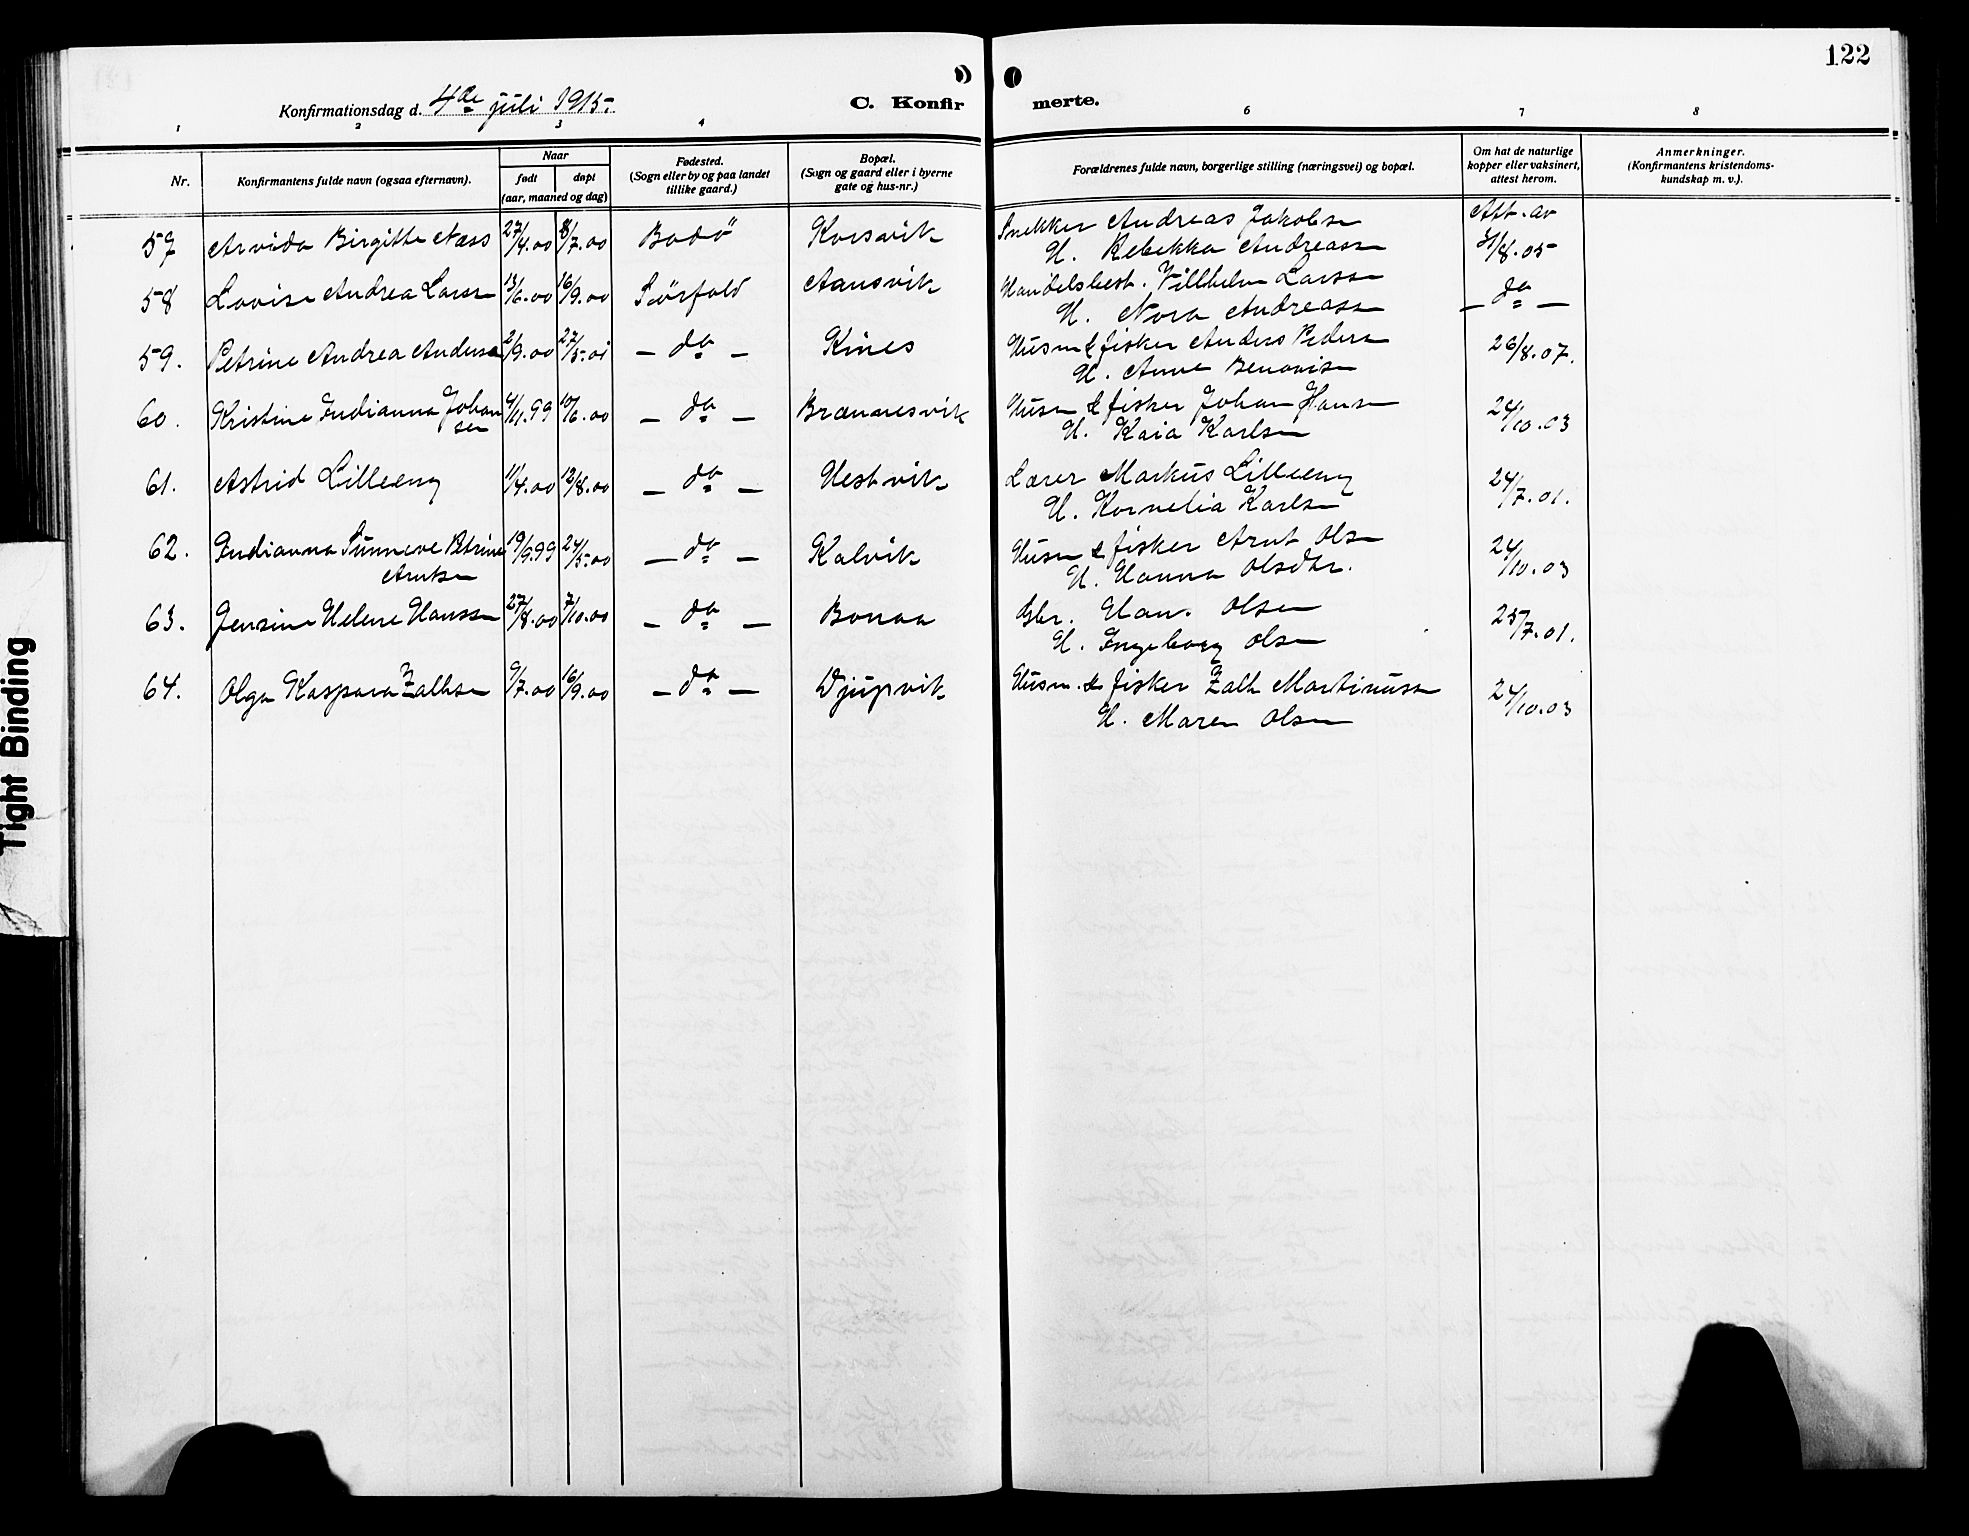 122
Konfirmationsdag d. 4de juli 1915.
C. Konfir
merte.
1 2 3 4 6 7 8
Nr.
Konfirmantens fulde navn (ogsaa efternavn).
Naar
født døpt
(aar, maaned og dag)
Fødested.
(Sogn eller by og paa landet
tillike gaard.)
Bopæl.
(Sogn og gaard eller i byerne
gate og hus-nr.)
Forældrenes fulde navn, borgerlige stilling (næringsvei) og bopæl.
Om hat de naturlige
kopper eller vaksinert,
attest herom.
Anmerkninger.
(Konfirmantens kristendoms-
kundskap m. v.).
57 Arvida Birgitte Næss 27/4.00 8/7.00 Bodö Korsvik Snekker Andreas Jakobsen Att. av
H. Rebekka Andreassen /8.05
58 Lovise Andrea Larsen 13/6.00 16/9.00 Sörfold Aansvik Handelsbest. Villhelm Larssen — do —
H. Nora Andreassen
59. Petrine Andrea Andersen 2/9.00 27/5.01 — do — Kines Husm & fisker Anders Pedersen 26/8.07.
H. Anne Benovise
60. Kristine Indianna Johan 4/11.99 10/6.00 — do — Brænnesvik Husm & fisker Johan Hansen 24/10.03
sen H. Kaia Karlsen
61. Astrid Lilleeng 11/4.00 12/8.00 — do — Hestvik Lærer Markus Lilleeng 24/7.01.
H. Kornelia Karlsen
62. Indianna Sunneve Petrine 19/9.99 24/5.00 — do — Kalvik Husm & fisker Arnt Olsen 24/10.03
Arntsen H. Hanna Olsdtr.
63. Jensine Helene Hanssen 27/8.00 7/10.00 — do — Bonaa Gbr. Han. Olsen 25/7.01.
H. Ingeborg Olsen
64. Olga Kaspara Zalhsen 9/7.00 16/9.00 — do — Djupvik Husm. & fisker Zalh Martinussen 24/10.03
H. Maren Olsen
Tight Binding